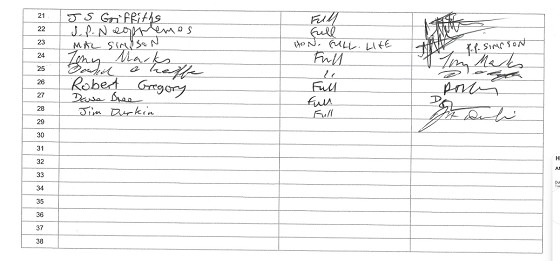 21 J S Griffiths Full
22 J.P. Neophytos Full
23 MAL SIMPSON HON. FULL. LIFE P.P. SIMPSON
24 Tony Marks Full Tony Marks
25 David O'Keeffe ''
26 Robert Gregory Full
27 Dave Bree Full
28 Jim Durkin Full Jim Durkin
29
30
31
32
33
34
35
36
37
38
H